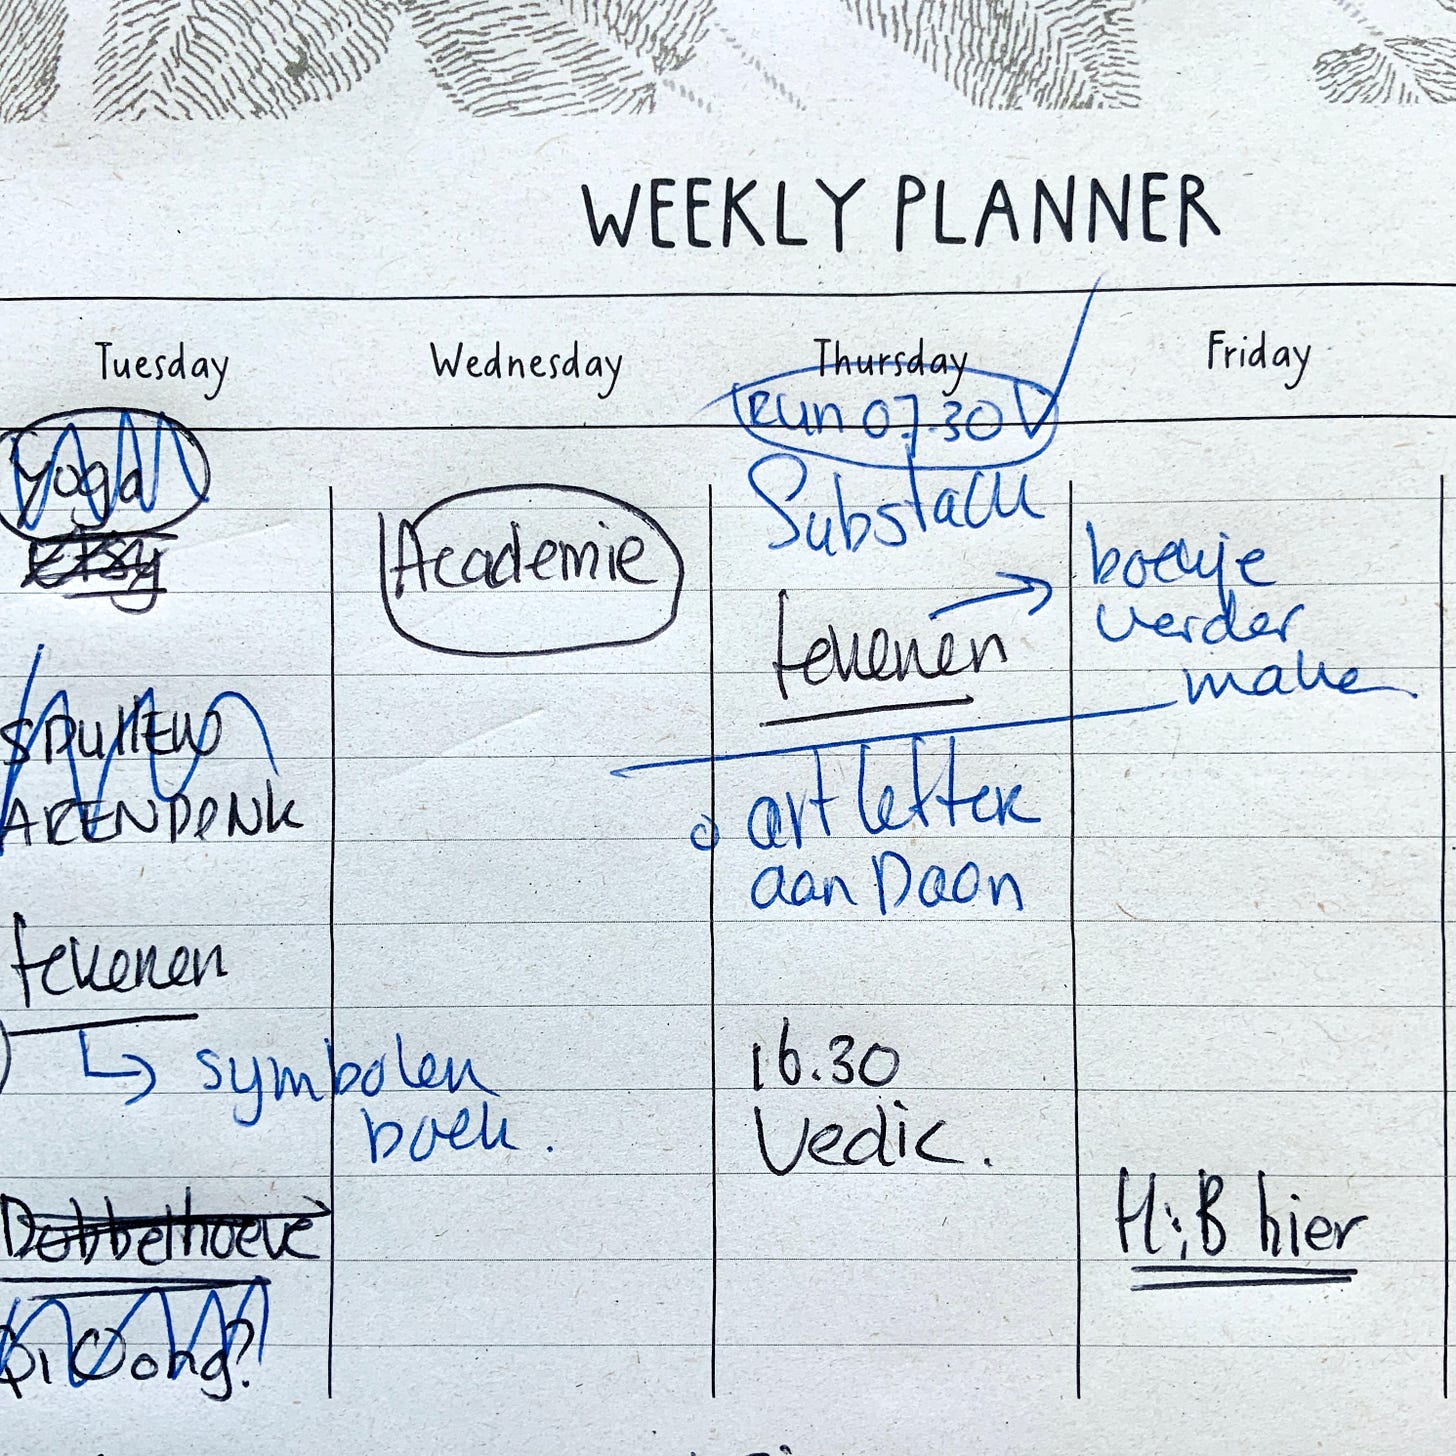 WEEKLY PLANNER
Tuesday
Yoga
Etsy
SPULLEN
ARENDONK
tekenen
symbolen
boek.
Dobbelhoeve
Qi Gong?
Wednesday
Academie
Thursday
Run 07.30
Substack
tekenen
art letter
aan Daan
16.30
Vedic.
Friday
boekje
verder
make
H;B hier